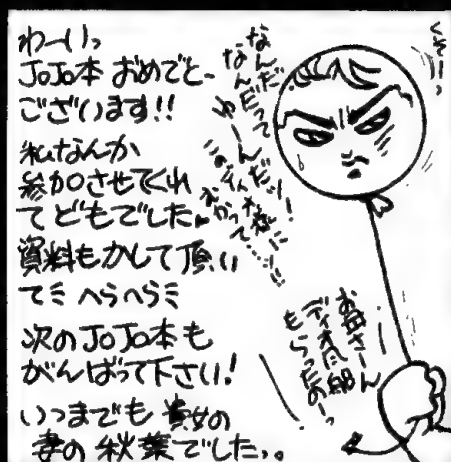 わーいっ
JoJo本 おめでと〜
ございます!!
私なんか
参加させてくれ
て どもでした。
資料もかして頂い
てミ へらへらミ
次のJoJo本も
がんばって下さい!
いつまでも 貴女の
妻の 秋葉でした。。
なんだ
なんだって
ゆーんだッ!
このディオ様に
むかって…!!
くそーっ
お母さーん
ディオ風船
もらったのーっ